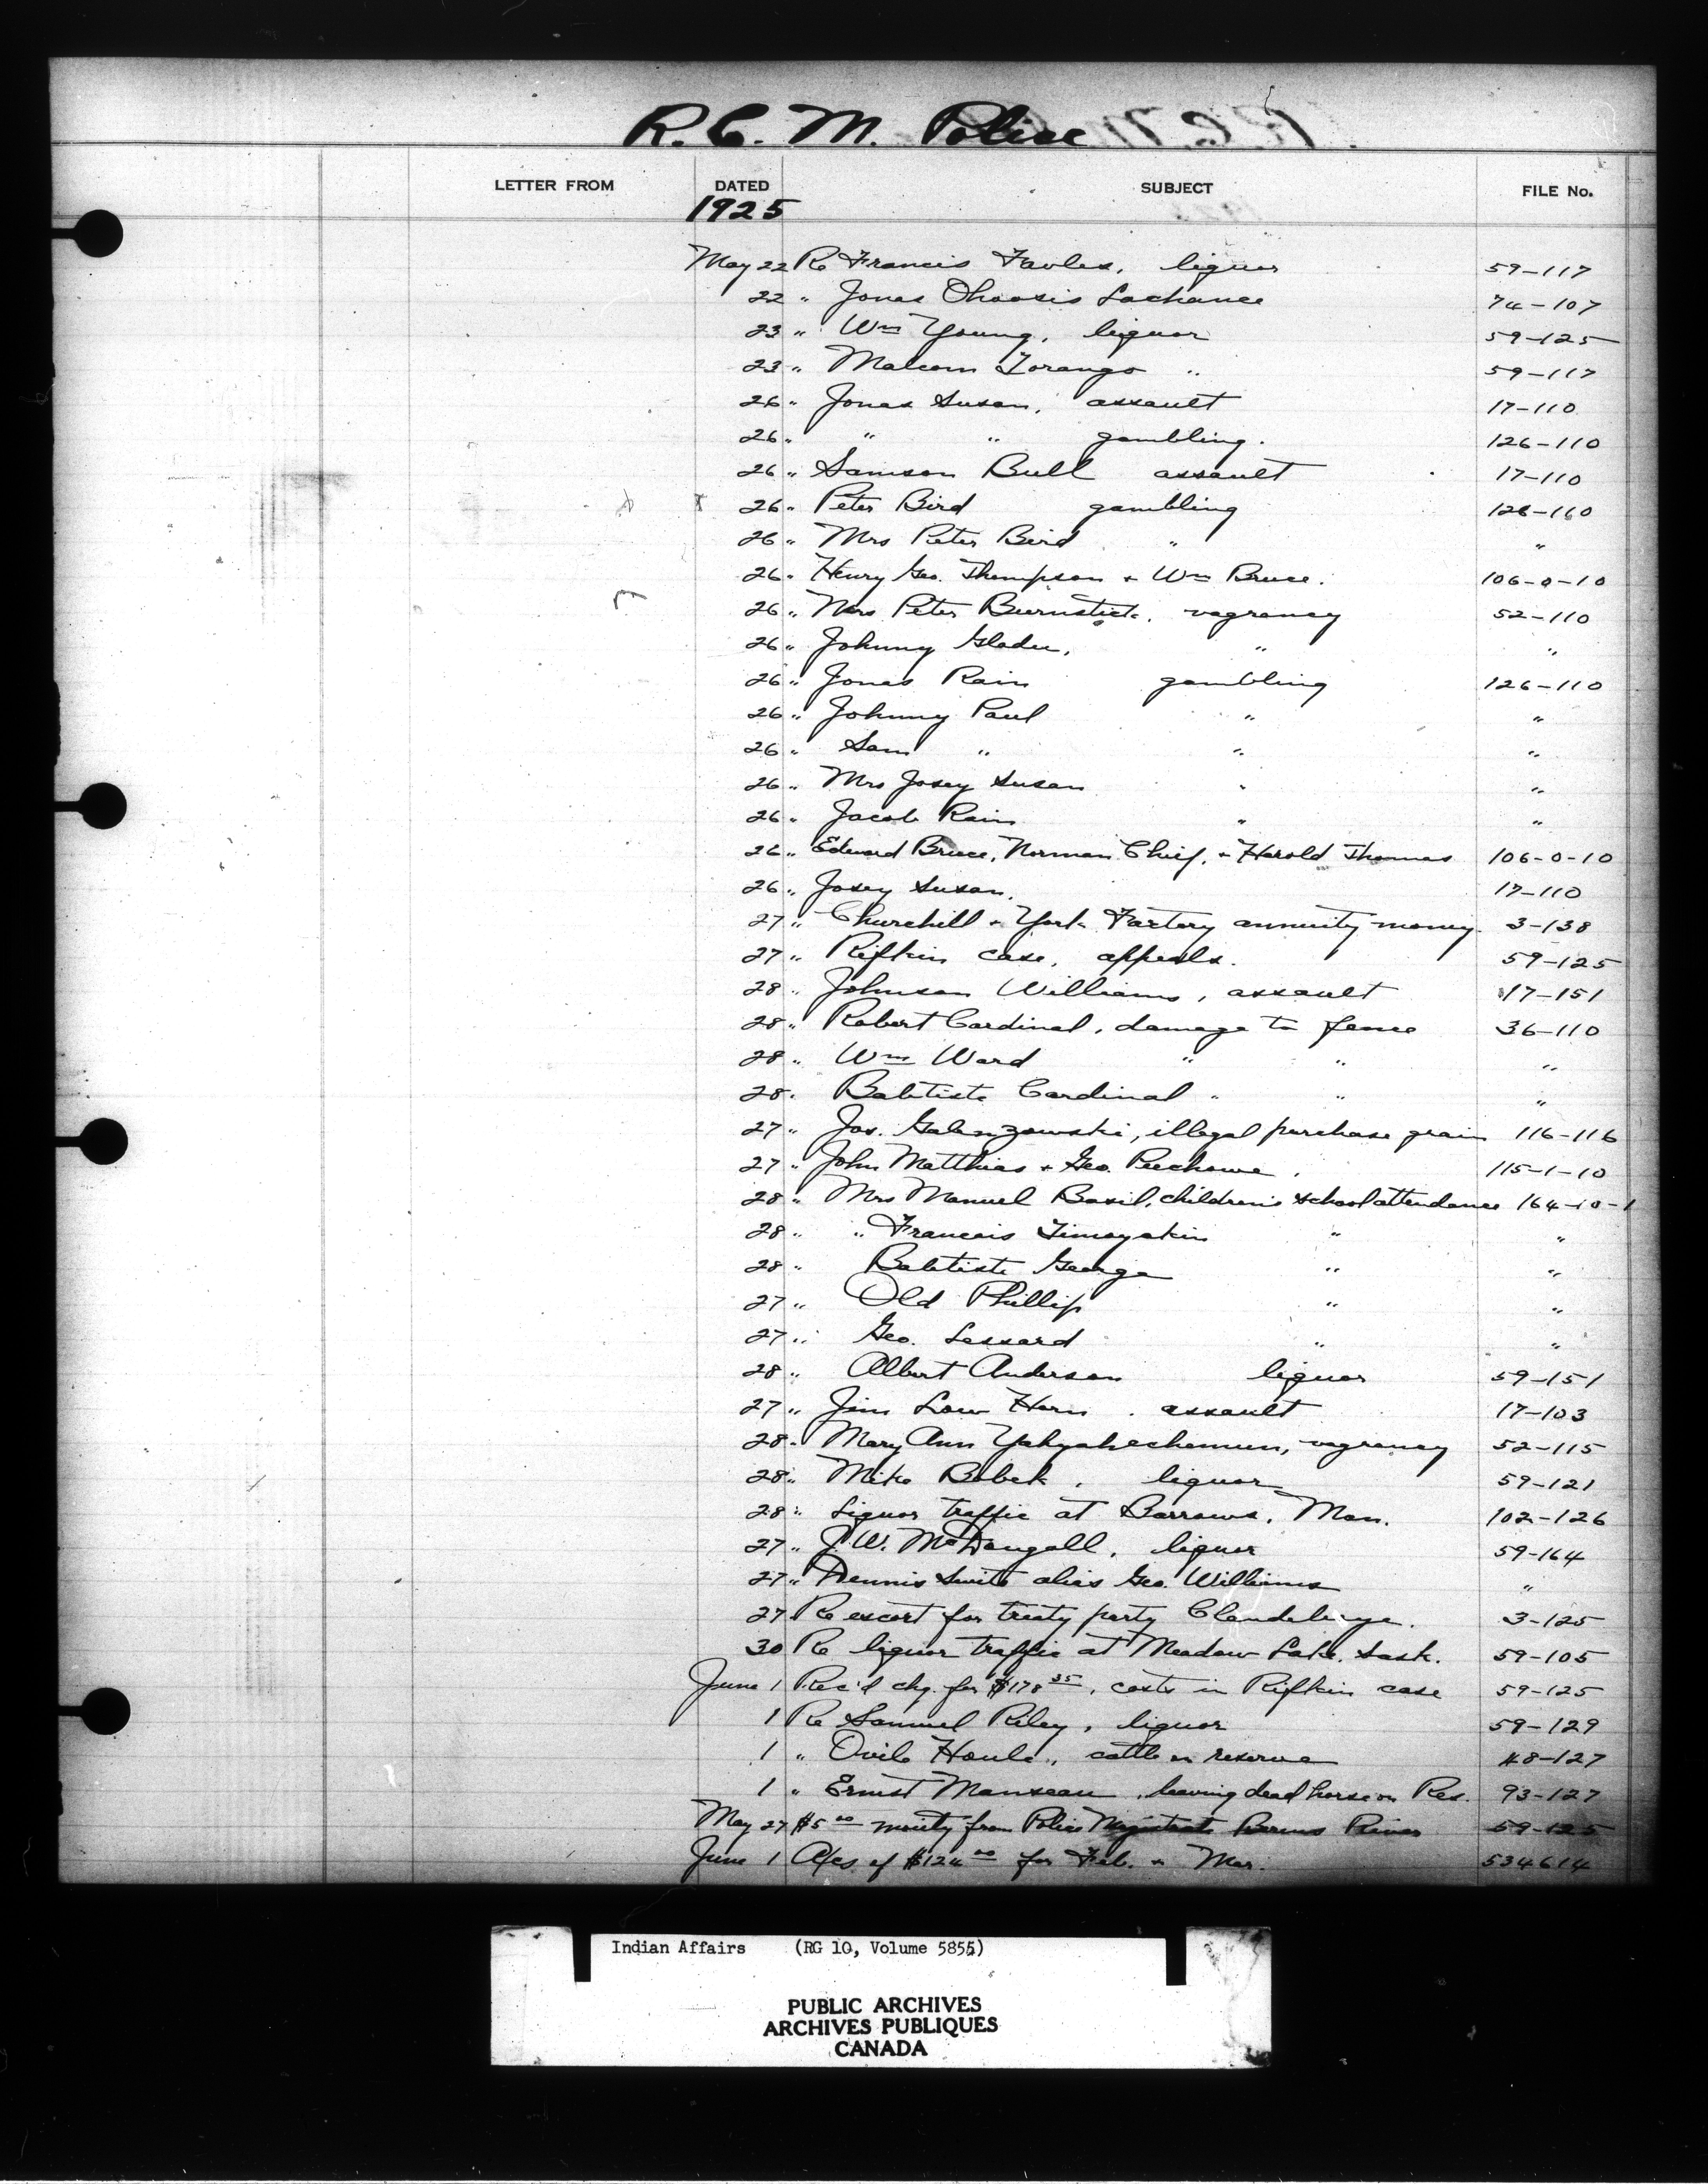 R. C. M. Police
LETTER FROM DATED SUBJECT FILE No.
1925
May 22 Re Francis Favles, liquor 59-117
22 " Jonas Ohoosis Lachance 74-107
23 " Wm Young, liquor 59-125
23 " Malcom Torango " 59-117
26 " Jonas Susan, assault 17-110
26 " " " gambling. 126-110
26 " Samson Bull assault 17-110
26 " Peter Bird gambling 126-110
26 " Mrs Peter Bird " "
26 " Henry Geo. Thompson + Wm Bruce. 106-0-10
26 " Mrs Peter Burnstick, vagrancy 52-110
26 " Johnny Gladu, " "
26 " Jonas Rain gambling 126-110
26 " Johnny Paul " "
26 " Sam " " "
26 " Mrs Josey Susan " "
26 " Jacob Rain " "
26 " Edward Bruce, Norman Chief, + Harold Thomas 106-0-10
26 " Josey Susan. 17-110
27 " Churchill + York Factory annuity money. 3-138
27 " Rifkin case, appeals. 59-125
28 " Johnson Williams, assault 17-151
28 " Robert Cardinal, damage to fence 36-110
28 " Wm Ward " " "
28 " Babtiste Cardinal " " "
27 " Jos. , illegal purchase grain 116-116
27 " John Matthias + Geo. 115-1-10
28 " Mrs Manuel Basil, children's school attendance 164-10-1
28 " " Francois Timoyakin " "
28 " Babtiste George " "
27 " Old Phillip " "
27 " Geo. Lessard " "
28 " Albert Anderson liquor 59-151
27 " Jim Low Horn, assault 17-103
28 " Mary Ann vagrancy 52-115
28 " Mike Bobek, liquor 59-121
28 " Liquor traffic at Barrows, Man. 102-126
27 " J. W. McDougall, liquor 59-164
27 " Dennis alias Geo. Williams "
27 Re escort for treaty party Clandeboye. 3-125
30 Re liquor traffic at Meadow Lake, Sask. 59-105
June 1 Rec'd chq. for $178 35, costs in Rifkin case 59-125
1 Re Samuel Riley, liquor 59-129
1 " Ovila Houle, cattle on reserve 48-127
1 " Ernest Manseau, leaving dead horse on Res. 93-127
May 27 $5 00 moiety from Police Magistrate Berens River 59-125
June 1 A/cs of $124 00 for Feb. + Mar. 534614
Indian Affairs (RG 10, Volume 5855)
PUBLIC ARCHIVES
ARCHIVES PUBLIQUES
CANADA